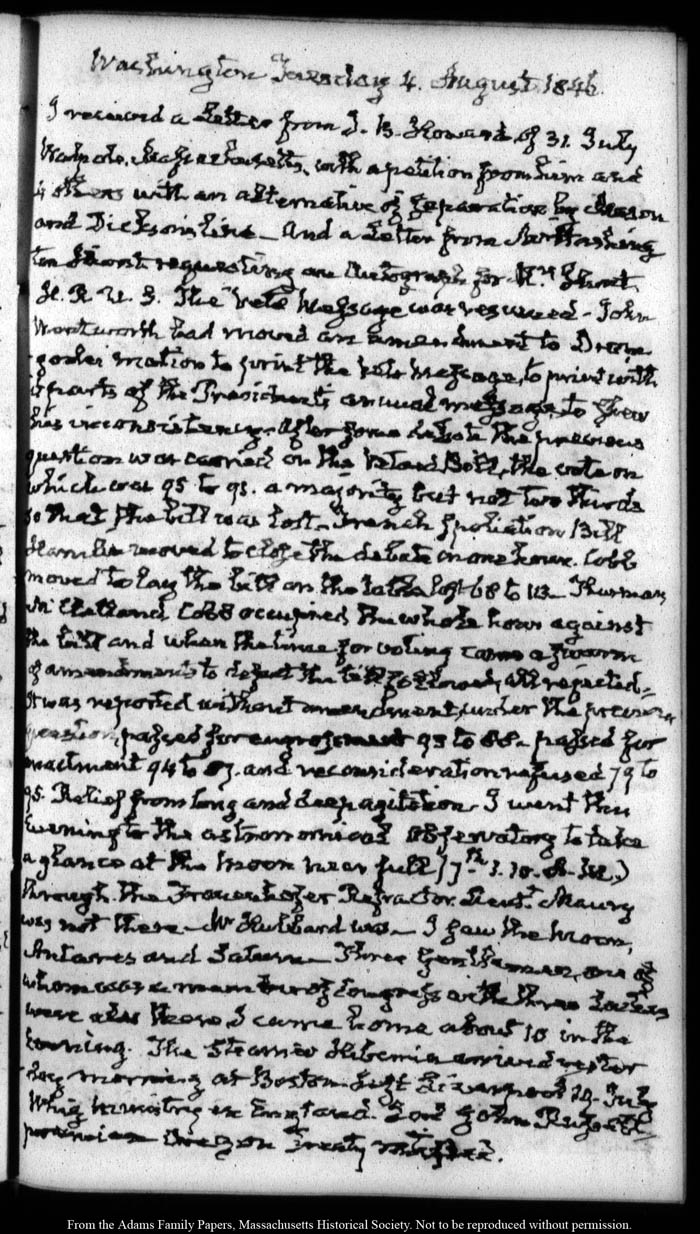 Washington Tuesday 4. August 1846.
I received a Letter from J. B. Howard of 31. July
Walpole, Massachusetts, with a petition from him and
4 others with an alternative of separation by Mason
and Dickson's line — And a Letter from Washing
ton Hunt requesting an Autograph for
H. R. U. S. The Veto Message was resumed — John
Wentworth had moved an amendment to Drom
goole's motion to print the Veto Message, to print with
it parts of the President's annual message, to shew
his inconsistency. After some debate the previous
question was carried on the Vetoed Bill, the vote on
which was 95 to 91. a majority but not two thirds
so that the bill was lost — French Spoliation Bill
Hamlin moved to close the debate in one hour. Cobb
moved to lay the bill on the table lost 68 to 113 — Thurman
and Cobb occupied the whole hour against
the bill and when the time for voting came a swarm
of amendments to defeat the bill followed, all rejected —
It was reported without amendment, under the previous
question, passed for engrossment 93 to 88 — passed for
enactment 94 to 87. and reconsideration refused 79 to
95. Relief from long and deep agitation. I went this
Evening to the astronomical observatory to take
a glance at the moon near full (7th 1. 10. A.M.)
through the Frauenhofer Refractor. Lieutt. Maury
was not there — Mr Hubbard was — I saw the Moon,
Antares and Saturn — Three Gentlemen, one of
whom was a member of Congress with three Ladies
were also there. I came home about 10 in the
Evening. The Steamer Hibernia arrived yester
day morning at Boston. Left Liverpool 19. July
Whig ministry in England. Lord John Russell
premier Oregon Treaty ratified.
From the Adams Family Papers, Massachusetts Historical Society. Not to be reproduced without permission.